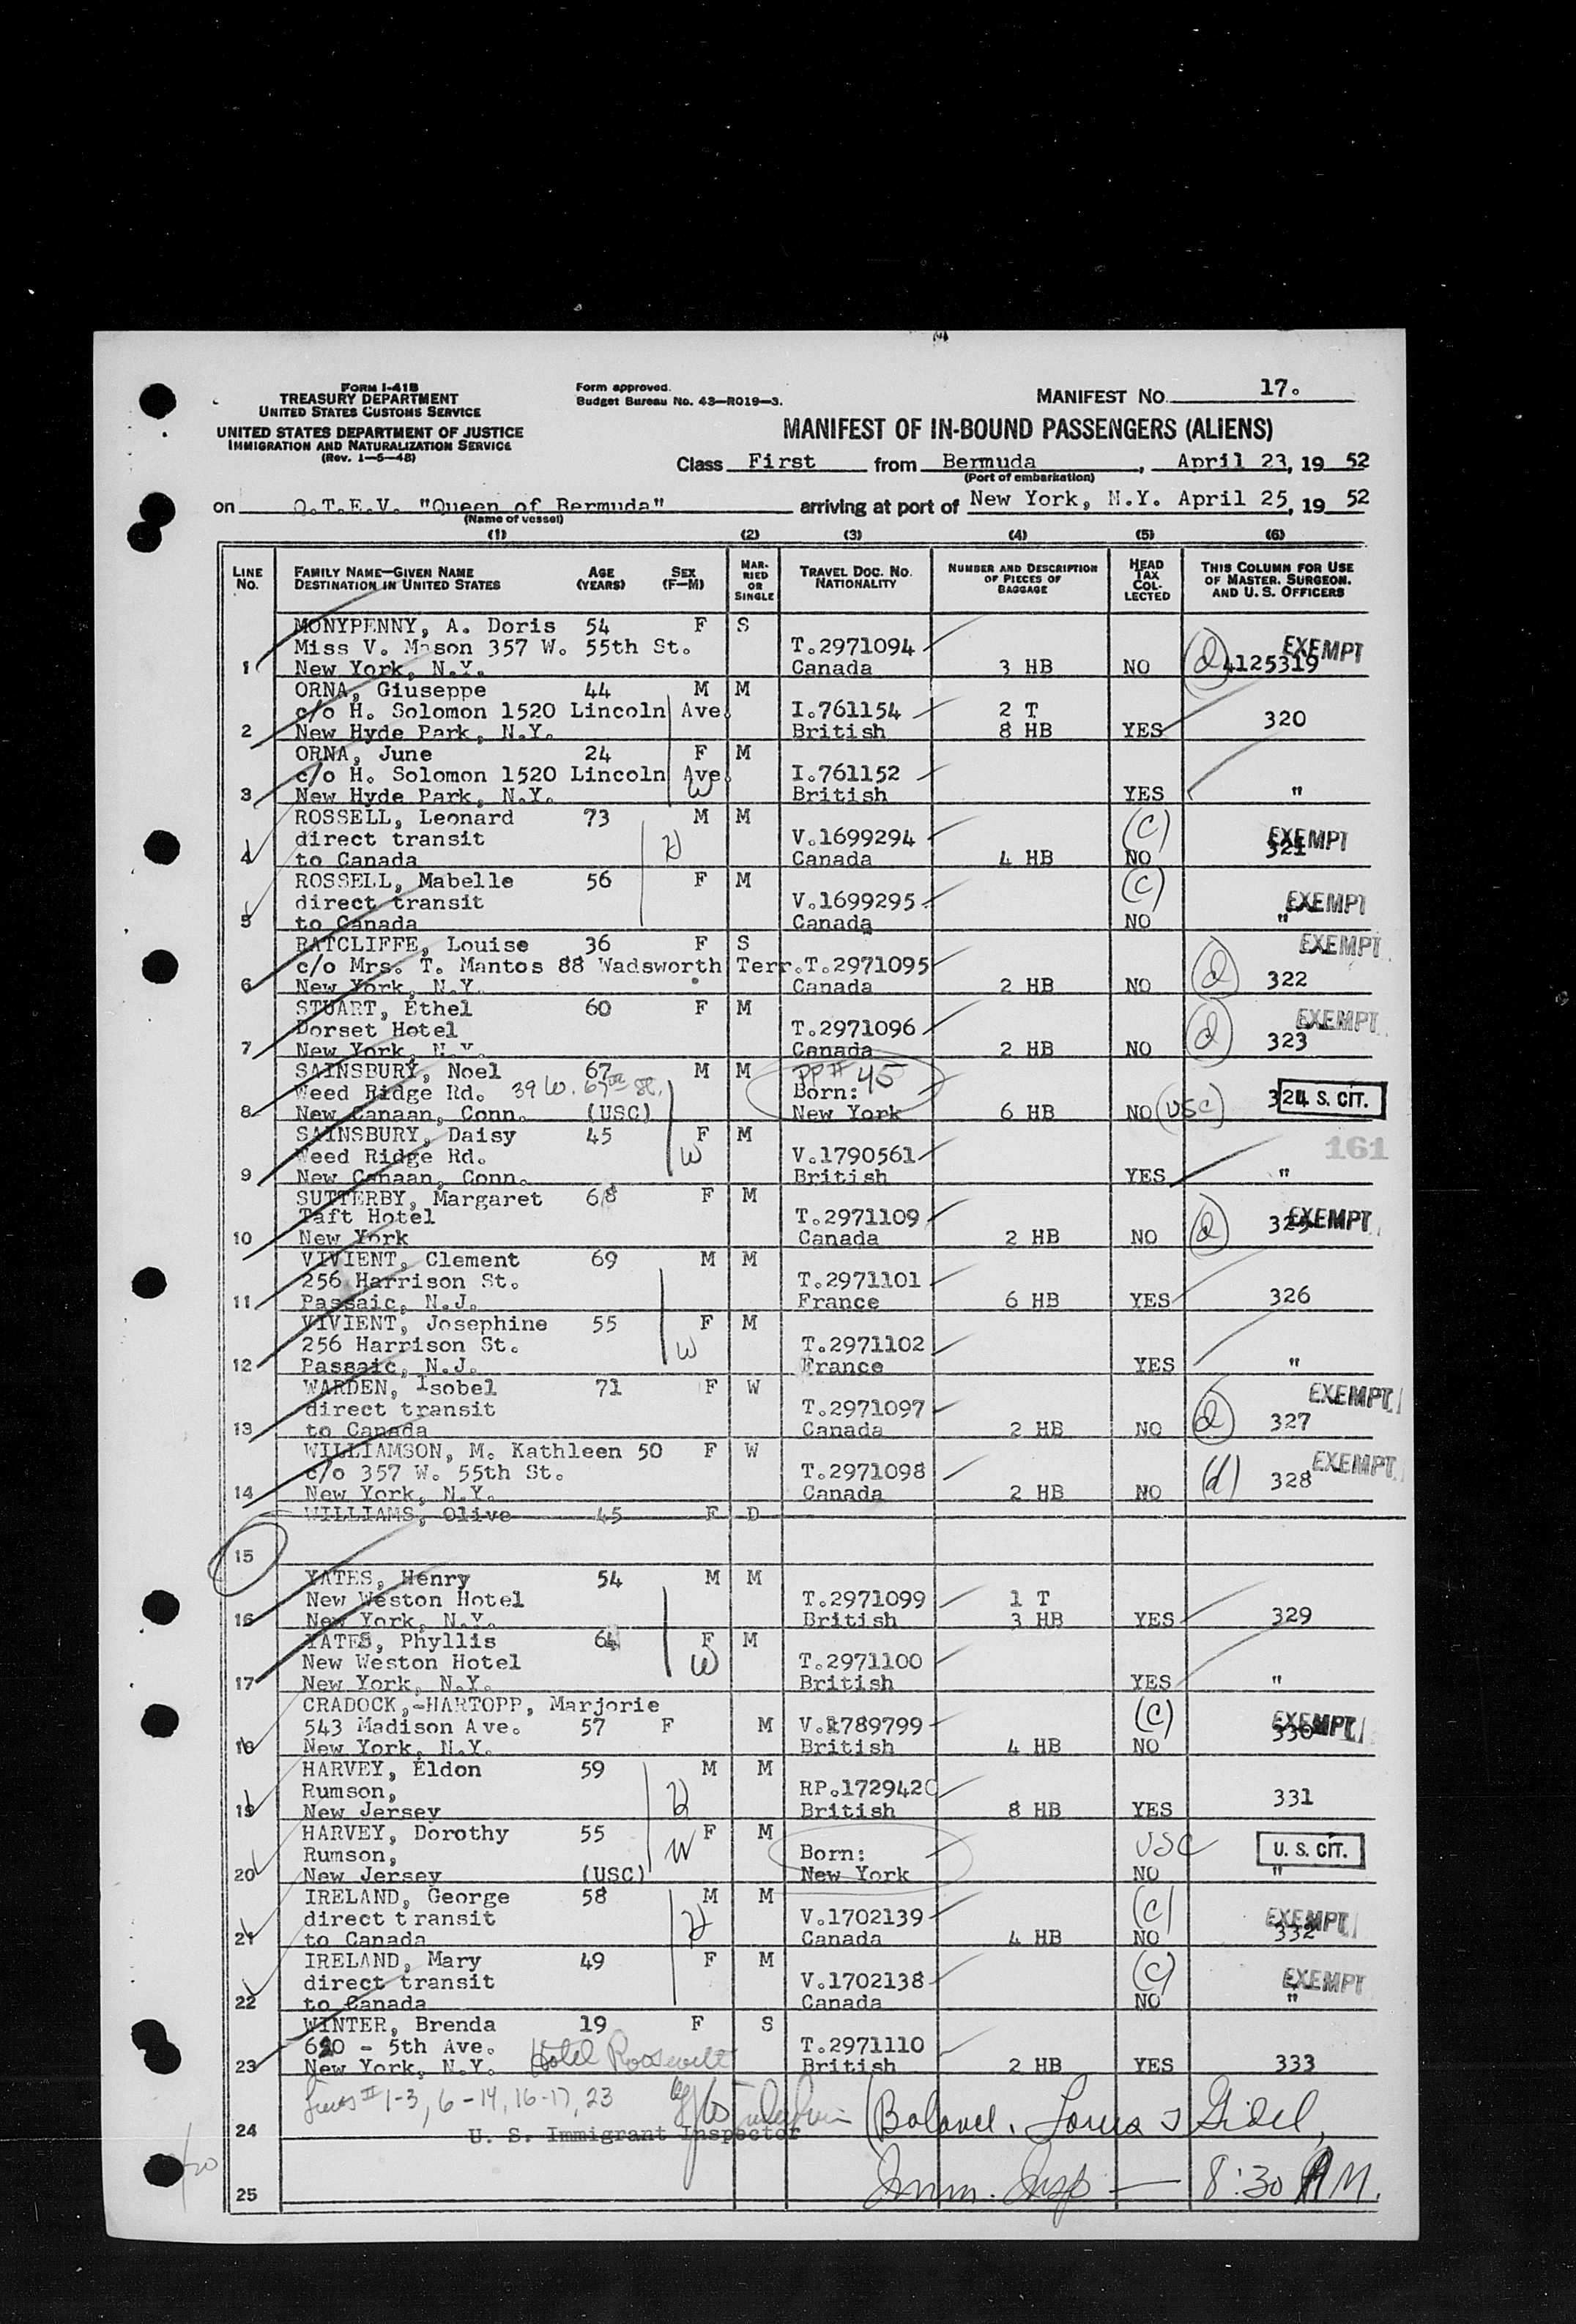 FORM I-418
TREASURY DEPARTMENT
UNITED STATES CUSTOMS SERVICE
UNITED STATES DEPARTMENT OF JUSTICE
IMMIGRATION AND NATURALIZATION SERVICE
(Rev. 1-5-48)
Form approved.
Budget Bureau No. 43-R019-3.
MANIFEST NO. 17.
MANIFEST OF IN-BOUND PASSENGERS (ALIENS)
Class First from Bermuda, April 23, 19 52
(Port of embarkation)
on Q.T.E.V. "Queen of Bermuda" arriving at port of New York, N.Y. April 25, 19 52
(Name of vessel)
(1) (2) (3) (4) (5) (6)
LINE NO. FAMILY NAME—GIVEN NAME DESTINATION IN UNITED STATES AGE (YEARS) SEX (F—M) MARRIED OR SINGLE TRAVEL DOC. NO. NATIONALITY NUMBER AND DESCRIPTION OF PIECES OF BAGGAGE HEAD TAX COLLECTED THIS COLUMN FOR USE OF MASTER, SURGEON, AND U. S. OFFICERS
MONYPENNY, A. Doris 54 F S
Miss V. Mason 357 W. 55th St. T.2971094 EXEMPT
1 New York, N.Y. Canada 3 HB NO (d) 4125319
ORNA, Giuseppe 44 M M
c/o H. Solomon 1520 Lincoln Ave. I.761154 2 T 320
2 New Hyde Park, N.Y. British 8 HB YES
ORNA, June 24 F M
c/o H. Solomon 1520 Lincoln Ave. I.761152
3 New Hyde Park, N.Y. W British YES "
ROSSELL, Leonard 73 M M (C)
direct transit V.1699294 EXEMPT
4 to Canada Canada 4 HB NO 321
ROSSELL, Mabelle 56 F M (C)
direct transit V.1699295 EXEMPT
5 to Canada Canada NO "
RATCLIFFE, Louise 36 F S EXEMPT
c/o Mrs. T. Mantos 88 Wadsworth Terr. T.2971095
6 New York, N.Y. Canada 2 HB NO (d) 322
STUART, Ethel 60 F M EXEMPT
Dorset Hotel T.2971096
7 New York, N.Y. Canada 2 HB NO (d) 323
SAINSBURY, Noel 67 M M PP# 45
Weed Ridge Rd. 39 W. 67th St. Born:
8 New Canaan, Conn. (USC) New York 6 HB NO (USC) 324 U. S. CIT.
SAINSBURY, Daisy 45 F M 161
Weed Ridge Rd. W V.1790561
9 New Canaan, Conn. British YES "
SUTTERBY, Margaret 68 F M
Taft Hotel T.2971109 325 EXEMPT
10 New York Canada 2 HB NO (d)
VIVIENT, Clement 69 M M
256 Harrison St. T.2971101
11 Passaic, N.J. France 6 HB YES 326
VIVIENT, Josephine 55 F M
256 Harrison St. W T.2971102
12 Passaic, N.J. France YES "
WARDEN, Isobel 71 F W EXEMPT
direct transit T.2971097
13 to Canada Canada 2 HB NO (d) 327
WILLIAMSON, M. Kathleen 50 F W EXEMPT
c/o 357 W. 55th St. T.2971098
14 New York, N.Y. Canada 2 HB NO (d) 328
WILLIAMS, Olive 45 F D
15
YATES, Henry 54 M M
New Weston Hotel T.2971099 1 T
16 New York, N.Y. British 3 HB YES 329
YATES, Phyllis 64 F M
New Weston Hotel W T.2971100
17 New York, N.Y. British YES "
CRADOCK,-HARTOPP, Marjorie (C)
543 Madison Ave. 57 F M V.1789799 EXEMPT
18 New York, N.Y. British 4 HB NO 330
HARVEY, Eldon 59 M M
Rumson, RP.1729420 331
19 New Jersey British 8 HB YES
HARVEY, Dorothy 55 F M USC
Rumson, W Born: U. S. CIT.
20 New Jersey (USC) New York NO "
IRELAND, George 58 M M (C)
direct transit V.1702139 EXEMPT
21 to Canada Canada 4 HB NO 332
IRELAND, Mary 49 F M (C)
direct transit V.1702138 EXEMPT
22 to Canada Canada NO "
WINTER, Brenda 19 F S
620 - 5th Ave. T.2971110
23 New York, N.Y. Hotel Roosevelt British 2 HB YES 333
Lines 1-3, 6-14, 16-17, 23
24 U. S. Immigrant Inspector Balance.
25 Imm. Insp — 8:30 AM.